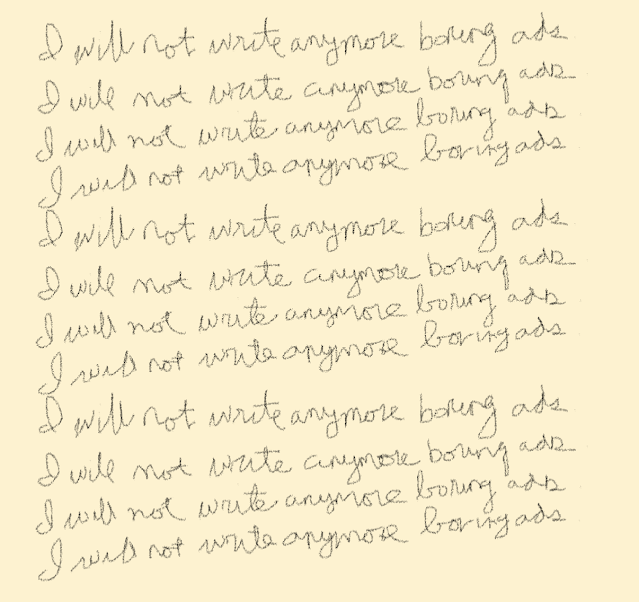 I will not write anymore boring ads
I will not write anymore boring ads
I will not write anymore boring ads
I will not write anymore boring ads
I will not write anymore boring ads
I will not write anymore boring ads
I will not write anymore boring ads
I will not write anymore boring ads
I will not write anymore boring ads
I will not write anymore boring ads
I will not write anymore boring ads
I will not write anymore boring ads